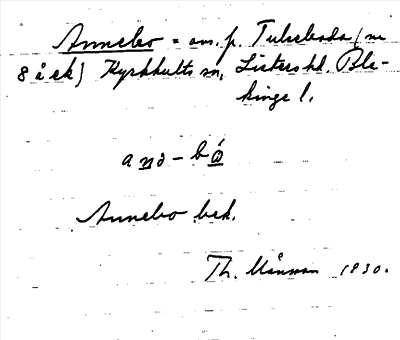 Annebo = om. p. Tulseboda (nr
8 å ek) Kyrkhults sn, Listers hd. Ble-
kinge l.
anə-bó
Annebo bek.
Th. Månsson 1930.